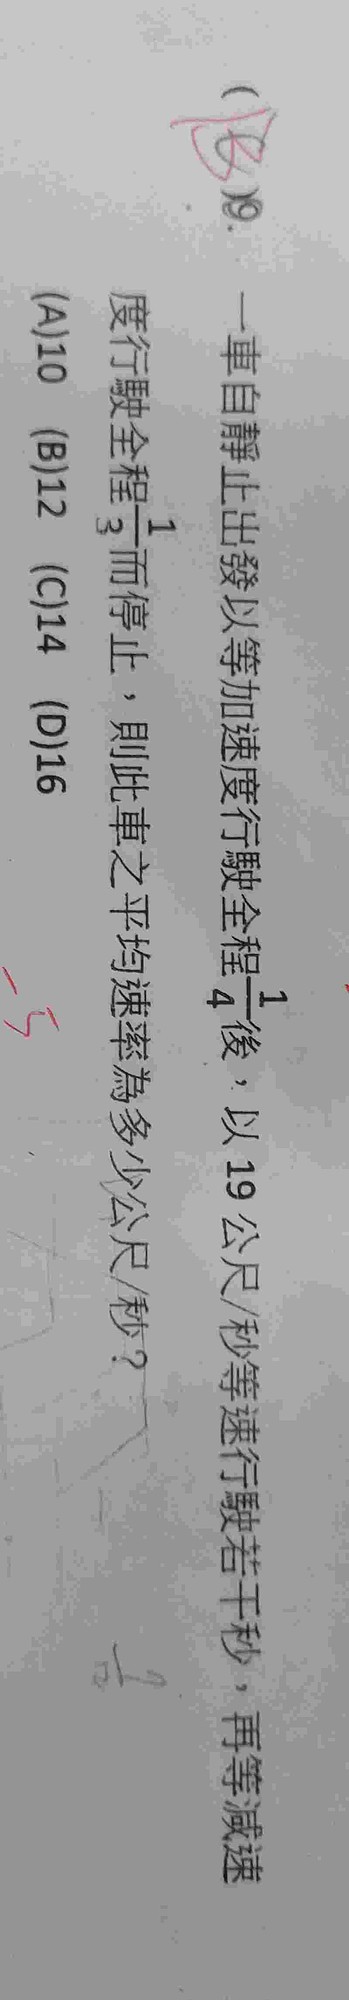 ( B )9. 一車自靜止出發以等加速度行駛全程1/4後，以 19 公尺/秒等速行駛若干秒，再等減速
度行駛全程1/3而停止，則此車之平均速率為多少公尺/秒？
(A)10 (B)12 (C)14 (D)16
-5